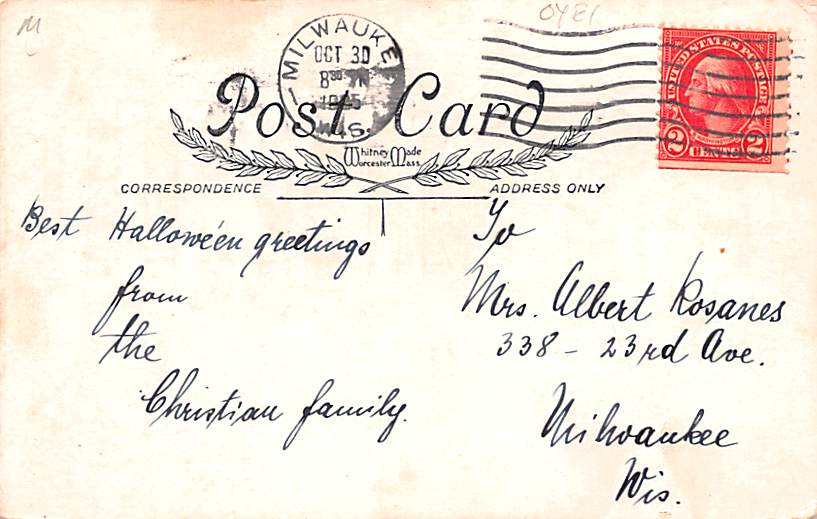 M
OYEI
MILWAUKEE
OCT 30
8 30
1925
WIS.
UNITED STATES POSTAGE
2 CENTS 2
Post Card
Whitney Made
Worcester Mass.
CORRESPONDENCE
ADDRESS ONLY
Best Hallowe'en greetings
from
the
Christian family.
To
Mrs. Albert Rosanes
338 - 23rd Ave.
Milwaukee
Wis.